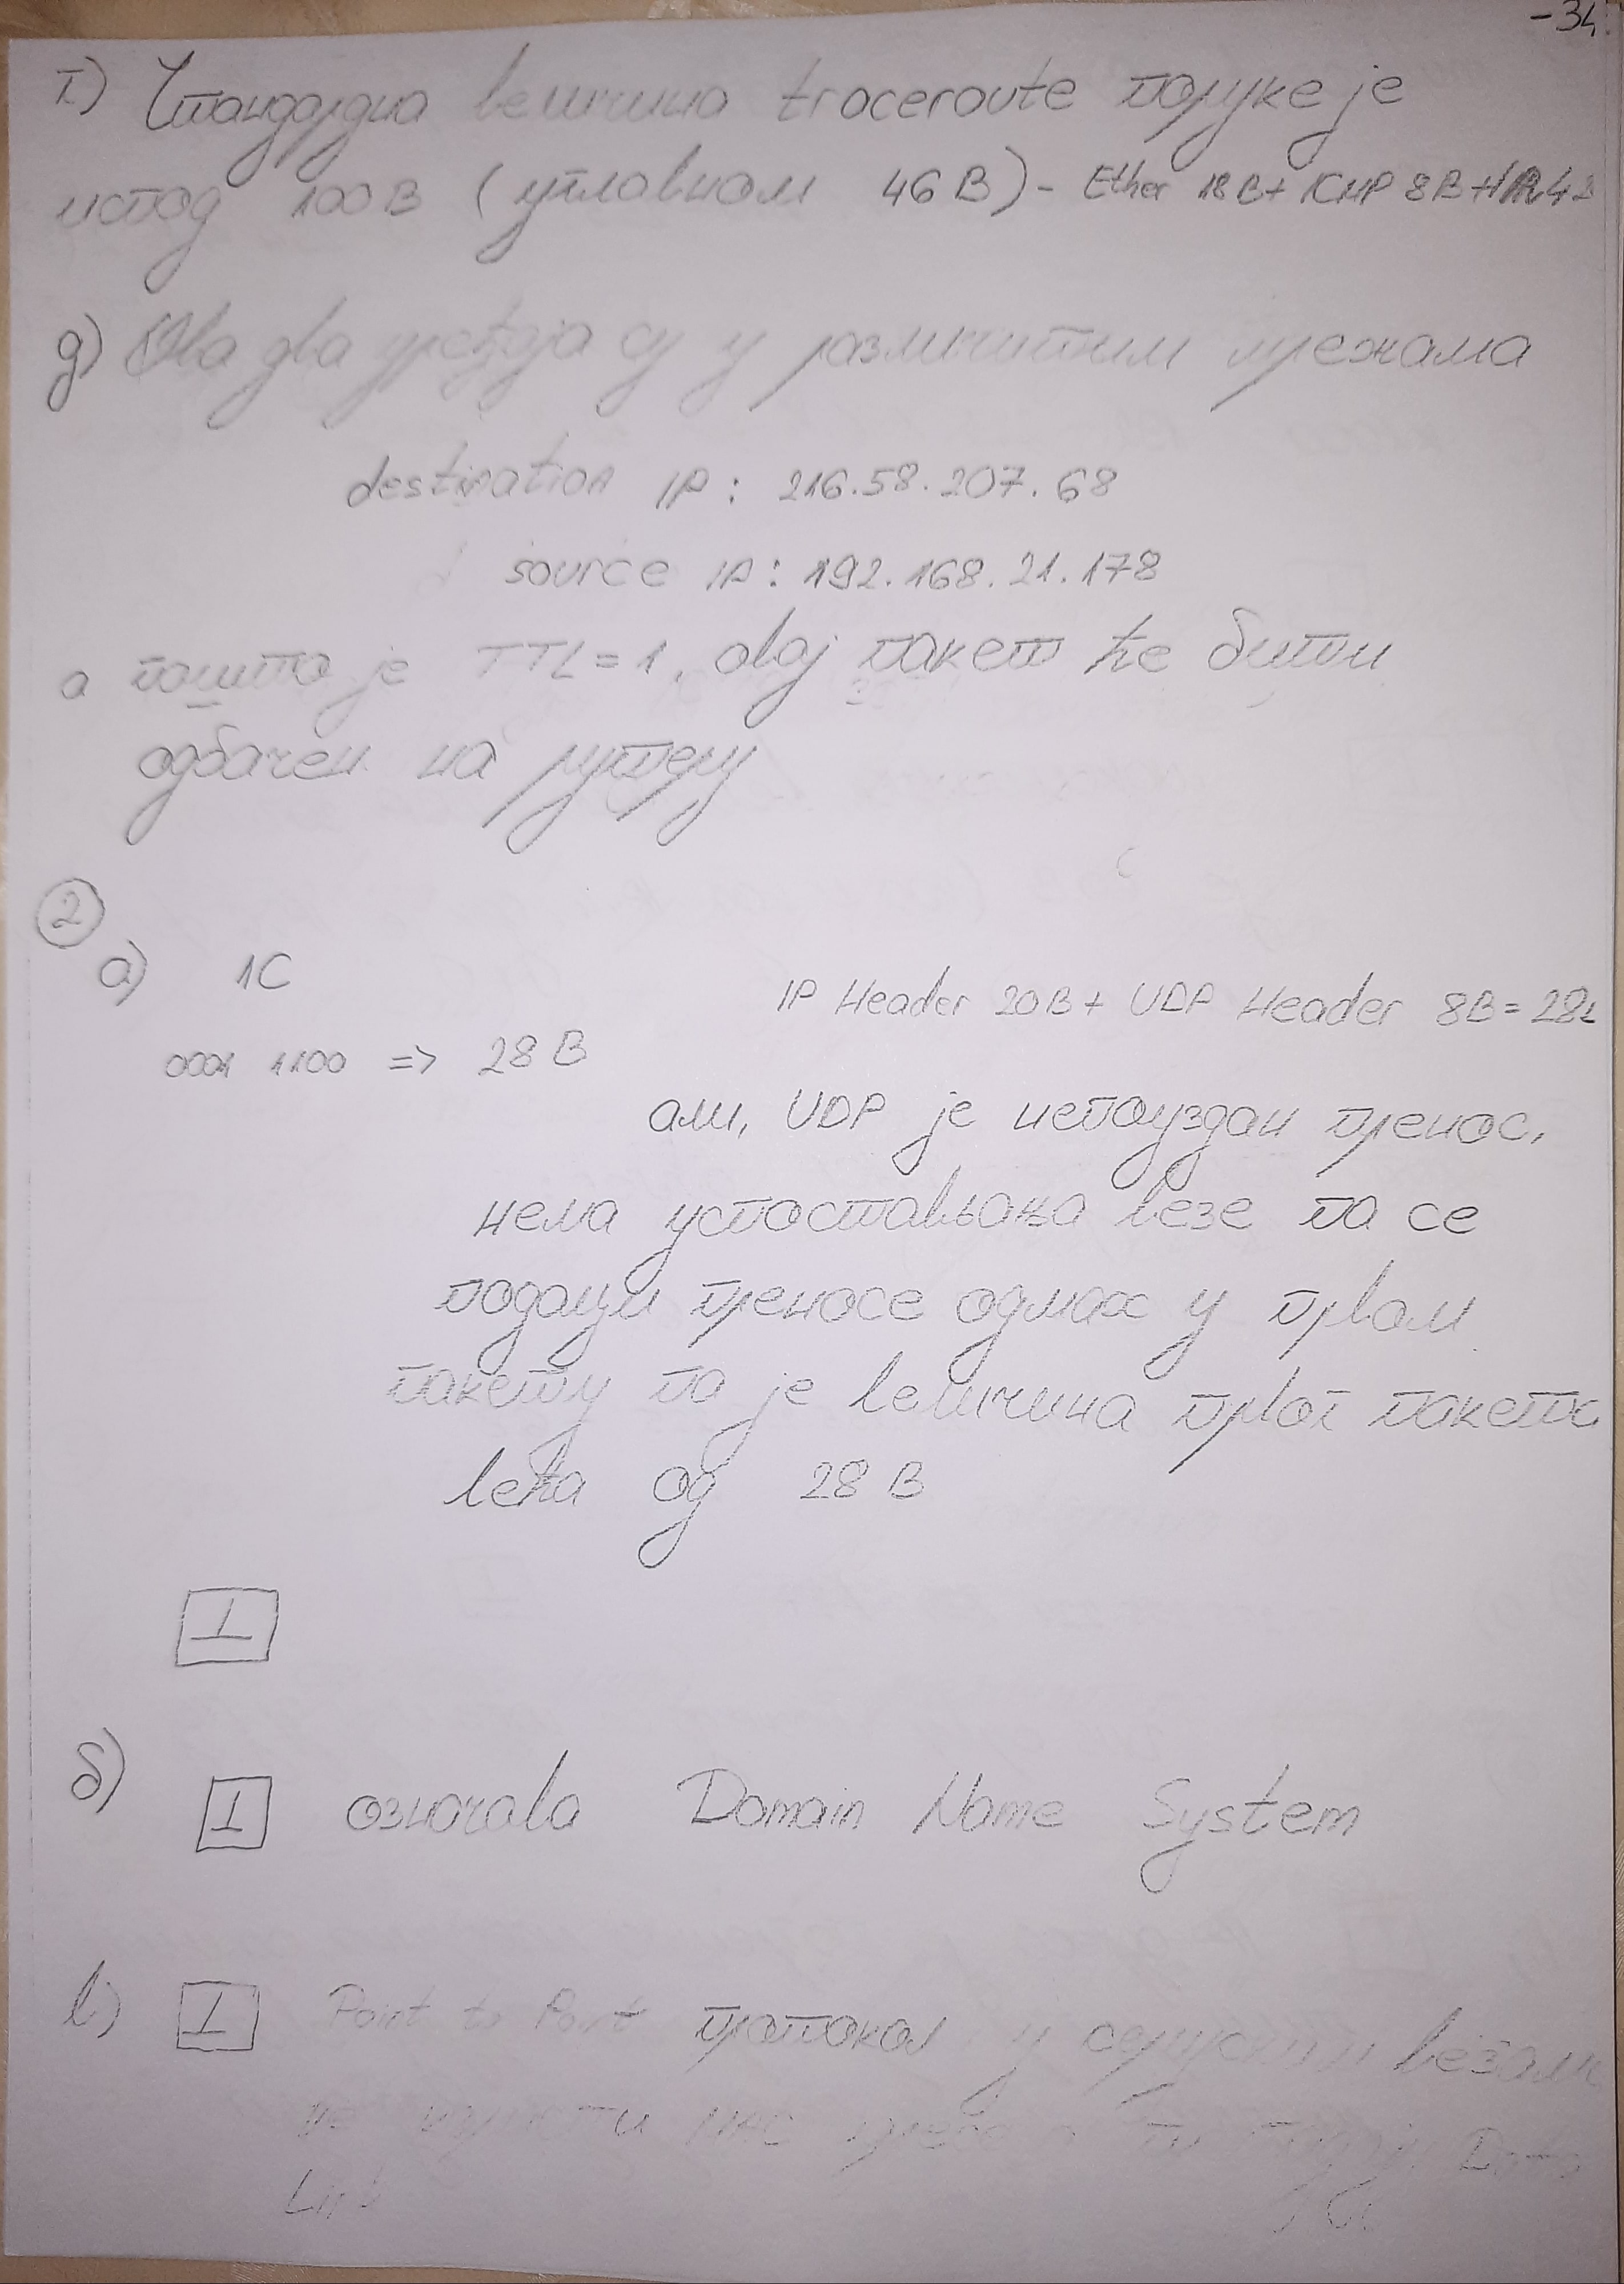 -34
г) Стандардна величина traceroute поруке је
испод 100B (углавном 46B) - Ether 18B + ICMP 8B +
д) Ова два уређаја су у различитим мрежама
destination IP: 216.58.207.68
source IP: 192.168.21.178
а пошто је TTL=1, овај пакет ће бити
одбачен на рутеру
2
а) 1C
IP Header 20B + UDP Header 8B = 28
0001 1100 => 28 B
али, UDP је непоуздан пренос,
нема успостављања везе па се
подаци преносе одмах у првом
пакету па је величина првог пакета
већа од 28 B
⊥
б) ⊥ означава Domain Name System
в) ⊥ Point to Point протокол у серијским везама
не користи MAC
Link